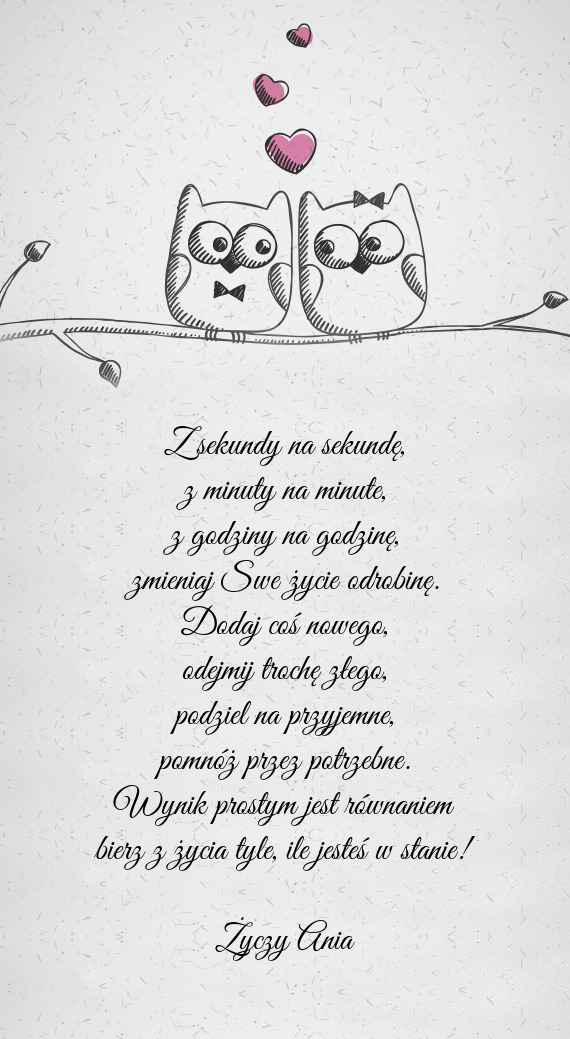 Z sekundy na sekundę,
z minuty na minute,
z godziny na godzinę,
zmieniaj Swe życie odrobinę.
Dodaj coś nowego,
odejmij trochę złego,
podziel na przyjemne,
pomnóż przez potrzebne.
Wynik prostym jest równaniem
bierz z życia tyle, ile jesteś w stanie!
Życzy Ania